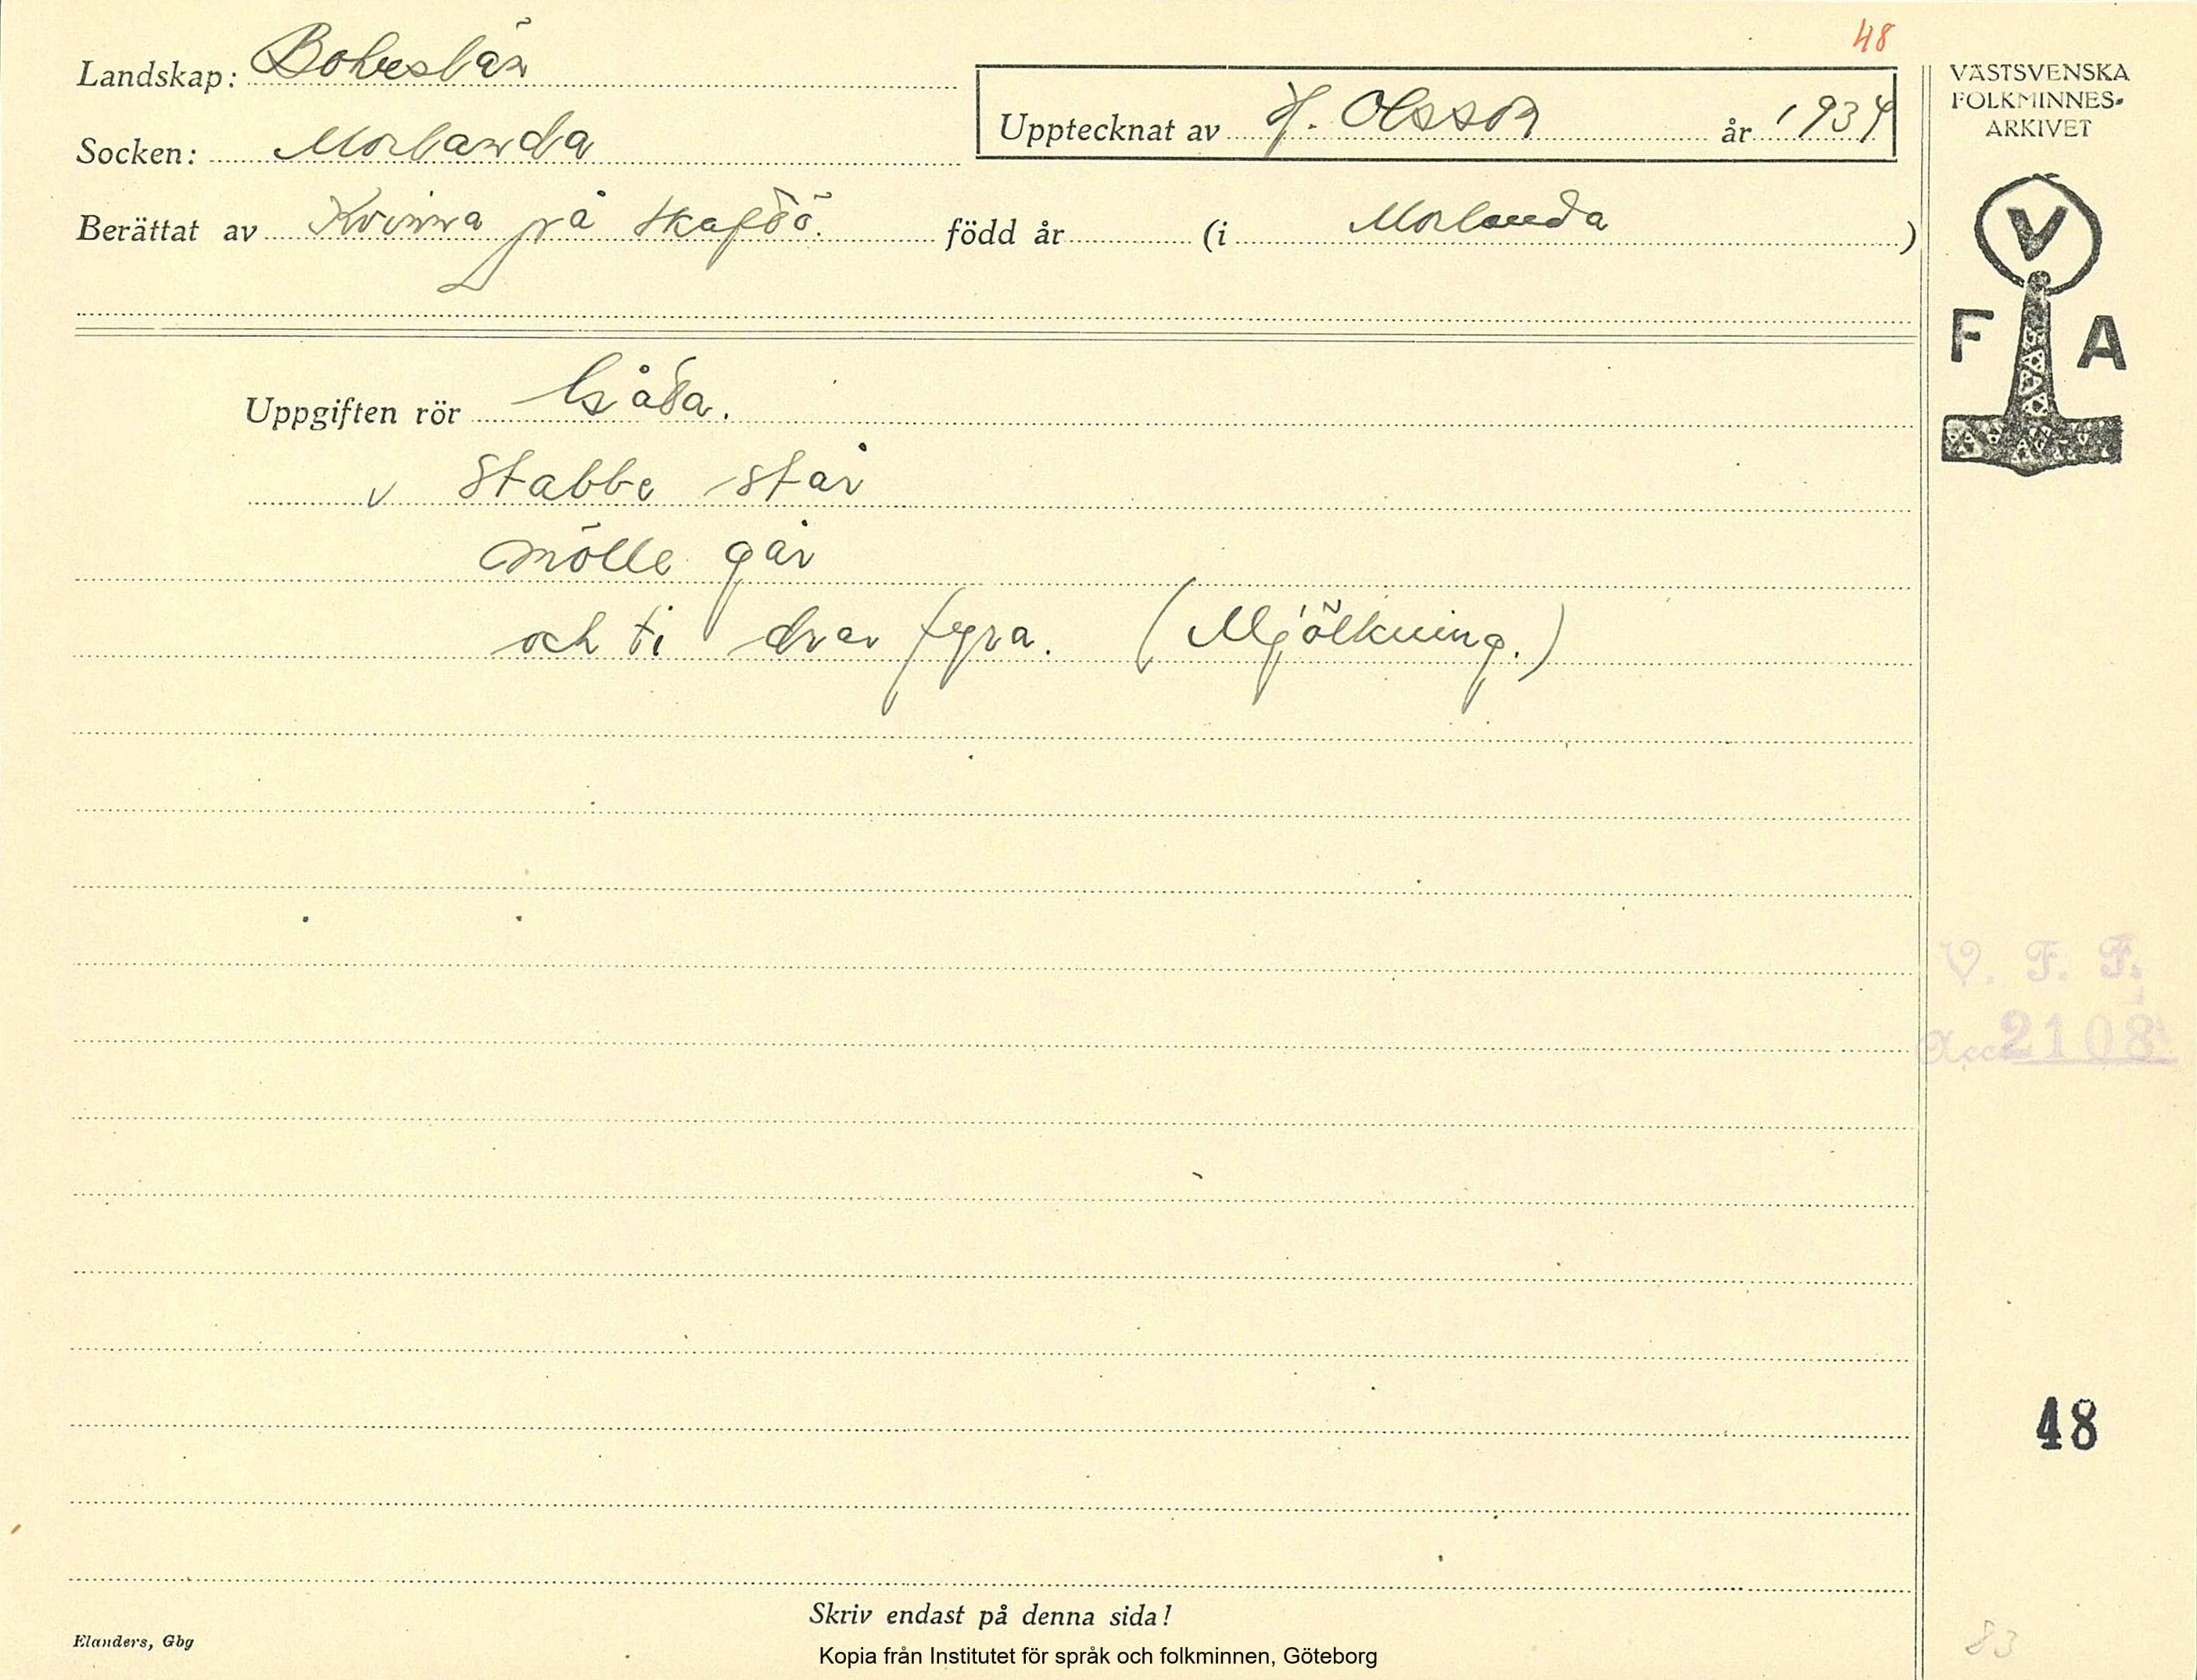 48
Landskap: Bohuslän
Socken: Morlanda
Upptecknat av H. Olsson år 1934
Berättat av Kvinna på Skaftö. född år (i Morlanda )
VÄSTSVENSKA
FOLKMINNES-
ARKIVET
V
F A
Uppgiften rör Gåta.
v Stabbe står
mölle går
och ti drar fyra. (Mjölkning.)
V. F. F.
Acc. 2108
48
Skriv endast på denna sida!
Elanders, Gbg
Kopia från Institutet för språk och folkminnen, Göteborg
83